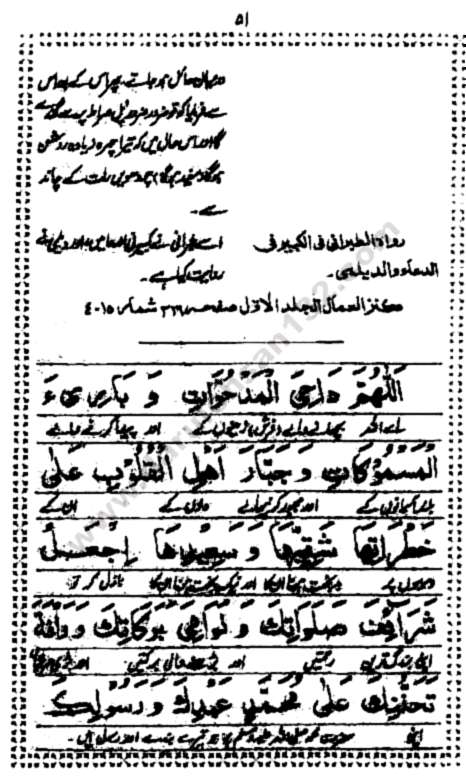 ۵۱
درمیان حائل ہو جاتے، پھر اس کے بعد اس
سے فرمایا کہ تو ضرور ضرور پل صراط پر سے گزرے
گا اور اس حال میں کہ تیرا چہرہ زیادہ روشن
ہوگا (سفید ہوگا) چودھویں رات کے چاند
سے۔
رواہ الطبرانی فی الکبیر فی
الدعاء والدیلمی۔
اسے طبرانی نے کبیر فی الدعا میں اور دیلمی نے
روایت کیا ہے۔
کنز العمال الجلد الاول صفحہ شمار ۴۰۱۵
اَللّٰهُمَّ دَاحِيَ الْمَدْحُوَّاتِ وَ بَارِئَ
اے اللہ بچھانے والے (فرش) زمینوں کے اور پیدا کرنے والے
الْمَسْمُوْكَاتِ وَ جَبَّارَ اَهْلِ الْقُلُوْبِ عَلٰى
بلند آسمانوں کے اور مجبور کرنے والے دلوں کے ان کے
خَطَرَاتِهَا شَقِيِّهَا وَ سَعِيْدِهَا اِجْعَلْ
نازل کر تو
شَرَائِفَ صَلَوَاتِكَ وَ نَوَامِيَ بَرَكَاتِكَ وَ رَافَةَ
اپنی بزرگترین رحمتیں اور بڑھنے والی برکتیں اور
تَحَنُّنِكَ عَلٰى مُحَمَّدٍ عَبْدِكَ وَ رَسُوْلِكَ
اپنی حضرت محمد صلی اللہ علیہ وسلم پر جو تیرے بندے اور رسول ہیں۔